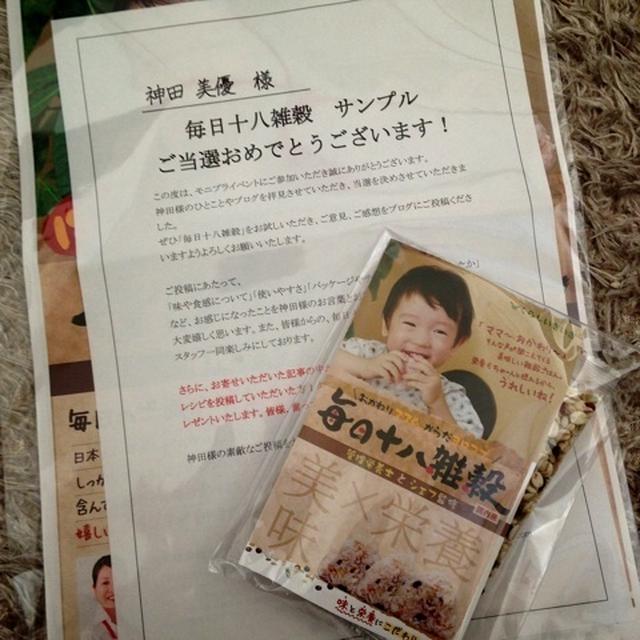 神田 美優 様
毎日十八雑穀 サンプル
ご当選おめでとうございます!
この度は、モニプライベントにご参加いただき誠にありがとうございます。
神田様のひとことやブログを拝見させていただき、当選を決めさせていただきま
した。
ぜひ「毎日十八雑穀」をお試しいただき、ご意見、ご感想をブログにご投稿くださ
いますようよろしくお願いいたします。
ご投稿にあたって、
「味や食感について」「使いやすさ」「パッケージ
など、お感じになったことを神田様のお言葉
大変嬉しく思います。また、皆様からの、毎日
スタッフ一同楽しみにしております。
さらに、お寄せいただいた記事の
レシピを投稿していただいた
レゼントいたします。皆様、
神田様の素敵なご投稿を
「ママー、おかわり!」
うれしいね!
毎日十八雑穀
美味×栄養
味と栄養にこだわり
毎
日本
しっか
含んで
嬉し